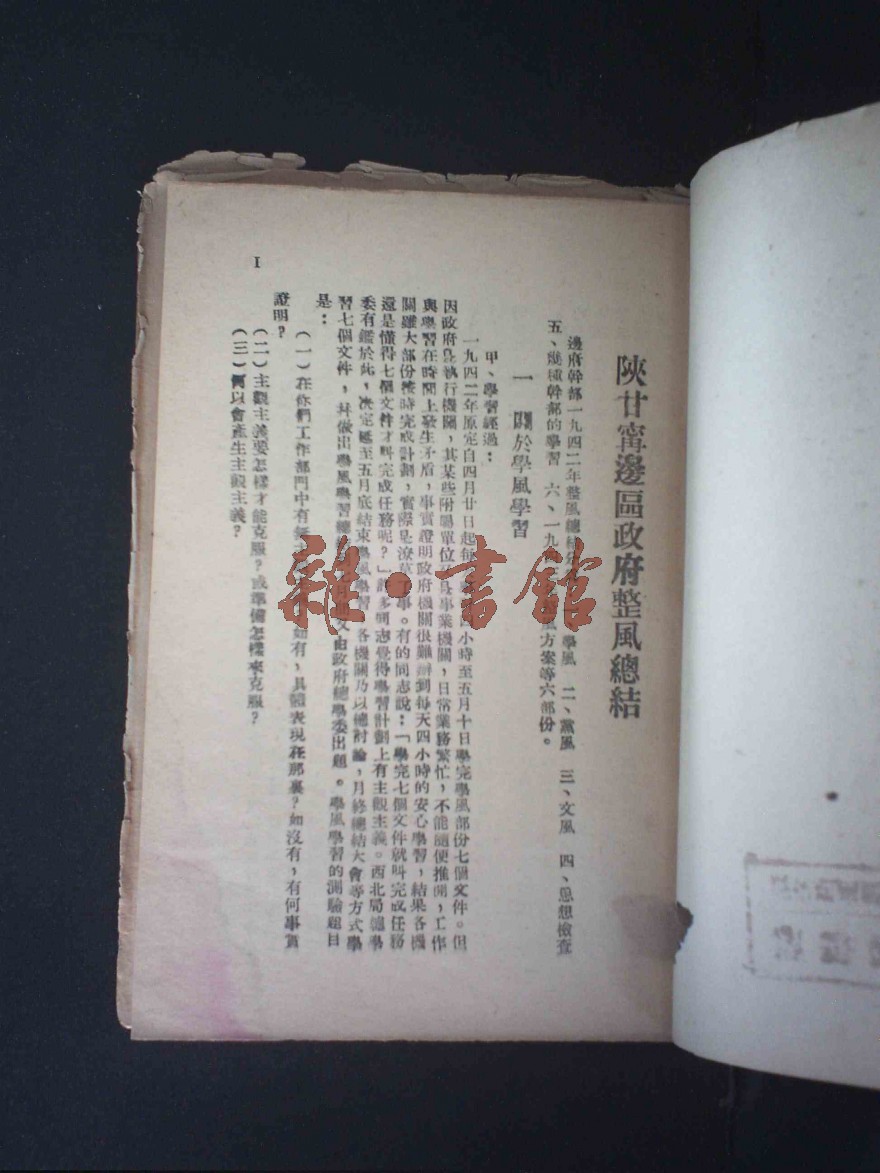 陝甘甯邊區政府整風總結
邊府幹部一九四二年整風總結 學風 二、黨風 三、文風 四、思想檢查
五、幾種幹部的學習 六、一九四 方案等六部份。
一 關於學風學習
甲、學習經過：
一九四二年原定自四月廿日起每 四小時至五月十日學完學風部份七個文件。但
因政府爲執行機關，其某些附屬單位 事業機關，日常業務繁忙，不能隨便推開，工作
與學習在時間上發生矛盾，事實證明政府機關很難辦到每天四小時的安心學習，結果各機
關雖大部份按時完成計劃，實際是潦草了事。有的同志說：「學完七個文件就叫完成任務
還是懂得七個文件才叫完成任務呢？」許多同志覺得學習計劃上有主觀主義。西北局總學
委有鑑於此，決定延至五月底結束學風學習 各機關乃以總討論，月終總結大會等方式學
習七個文件，幷做出學風學習總結 由政府總學委出題。學風學習的測驗題目
是：
（一）在你們工作部門中有無主 如有，具體表現在那裏？如沒有，有何事實
證明？
（二）主觀主義要怎樣才能克服？或準備怎樣來克服？
（三）何以會產生主觀主義？
1
雜·書館